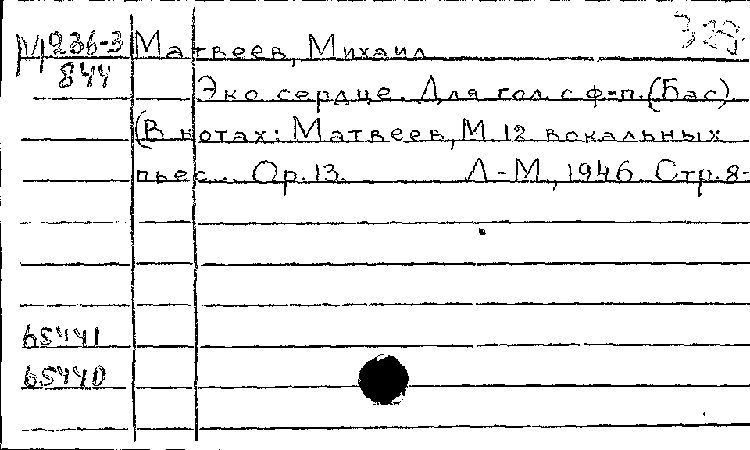 329.
М 236-3 Матвеев, Михаил
844
Эко сердце. Для гол. с ф-п. (Бас)
(В нотах: Матвеев, М. 12 вокальных
пьес.. Ор. 13. Л-М., 1946. Стр. 8-
65441
65440